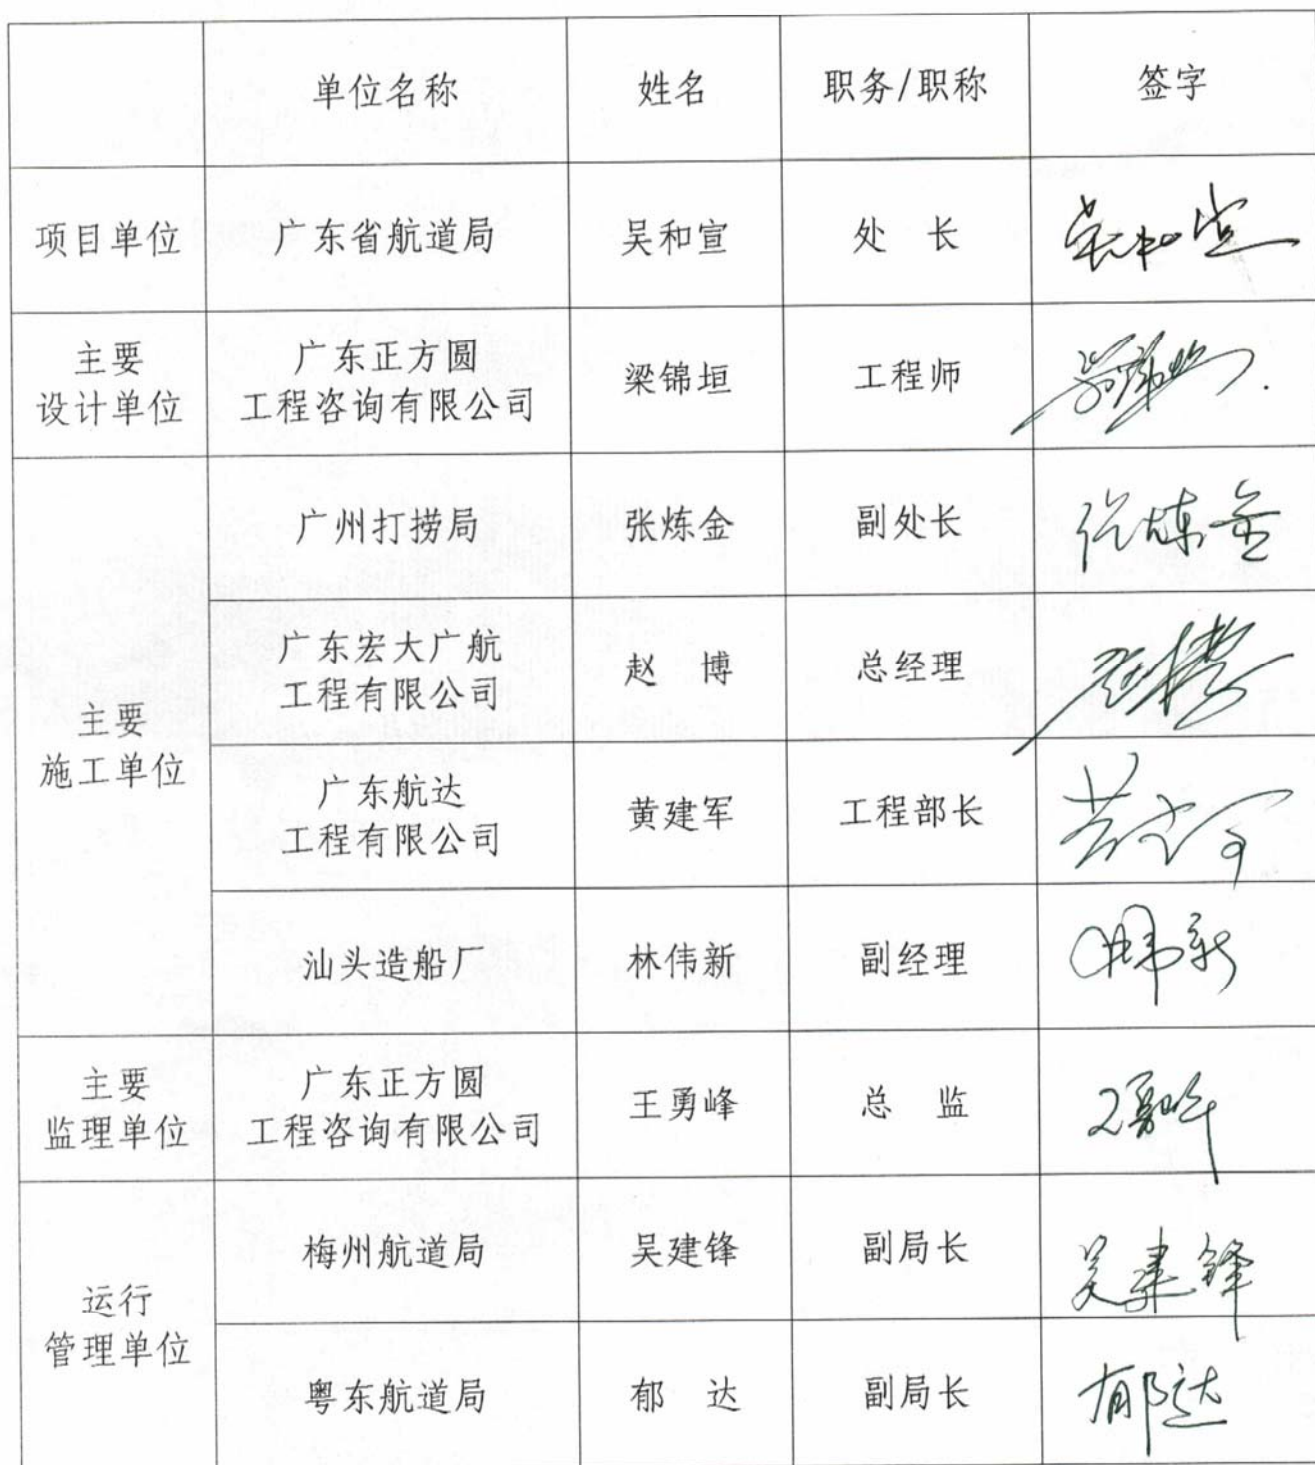 单位名称 姓名 职务/职称 签字
项目单位 广东省航道局 吴和宣 处 长 吴和宣
主要
设计单位
广东正方圆
工程咨询有限公司
梁锦垣 工程师
主要
施工单位
广州打捞局 张炼金 副处长 张炼金
广东宏大广航
工程有限公司
赵 博 总经理
广东航达
工程有限公司
黄建军 工程部长
汕头造船厂 林伟新 副经理 林伟新
主要
监理单位
广东正方圆
工程咨询有限公司
王勇峰 总 监 王勇峰
运行
管理单位
梅州航道局 吴建锋 副局长 吴建锋
粤东航道局 郁 达 副局长 郁达